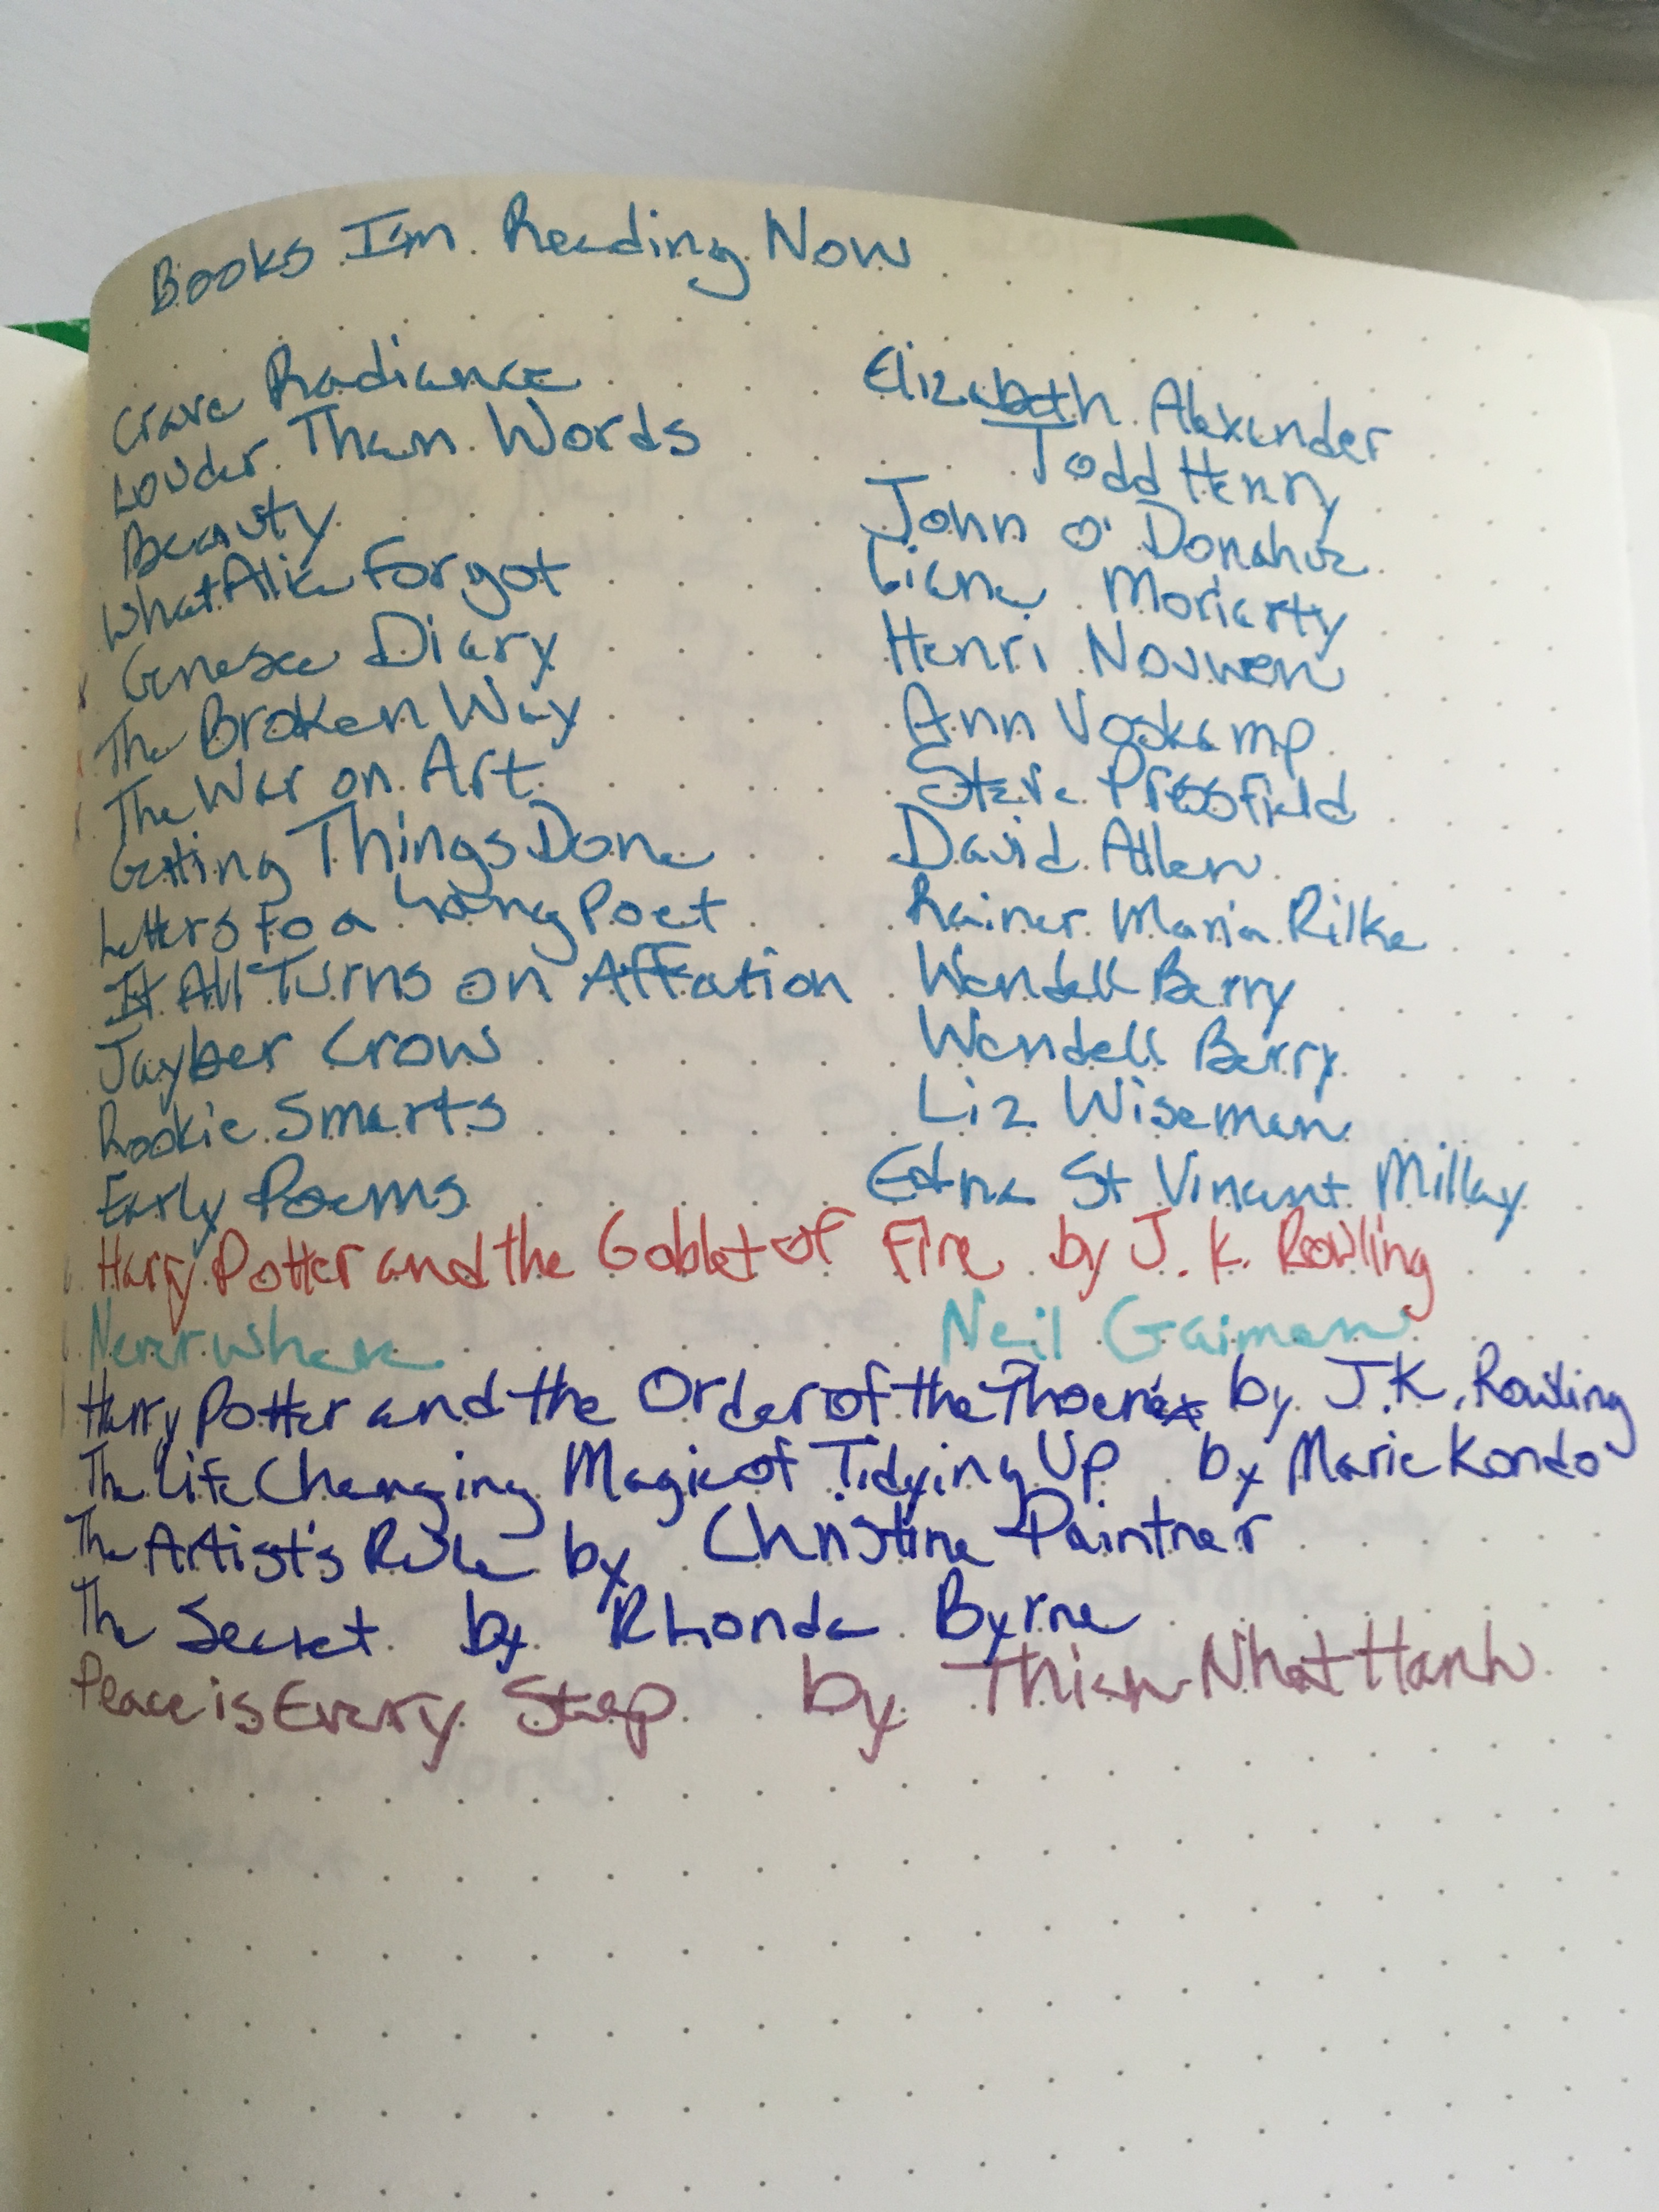 Books I'm Reading Now
Crave Radiance Elizabeth Alexander
Louder Than Words Todd Henry
Beauty John O'Donahue
What Alice Forgot Liane Moriarty
Genesee Diary Henri Nouwen
The Broken Way Ann Voskamp
The War on Art Steve Pressfield
Getting Things Done David Allen
Letters to a Young Poet Rainer Maria Rilke
It All Turns on Affection Wendell Berry
Jayber Crow Wendell Berry
Rookie Smarts Liz Wiseman
Early Poems Edna St Vincent Millay
Harry Potter and the Goblet of Fire by J. K. Rowling
Neverwhere Neil Gaiman
Harry Potter and the Order of the Phoenix by J.K. Rowling
The Life Changing Magic of Tidying Up by Marie Kondo
The Artist's Rule by Christine Paintner
The Secret by Rhonda Byrne
Peace is Every Step by Thich Nhat Hanh